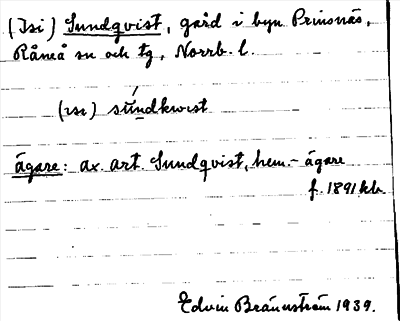 (Isi) Sundqvist, gård i byn Prinsnäs,
Råneå sn och tg, Norrb. l.
(ısı) súndkwıst
ägare: ax. art. Sundqvist, hem.-ägare
f. 1891 kb.
Edvin Brännström 1939.